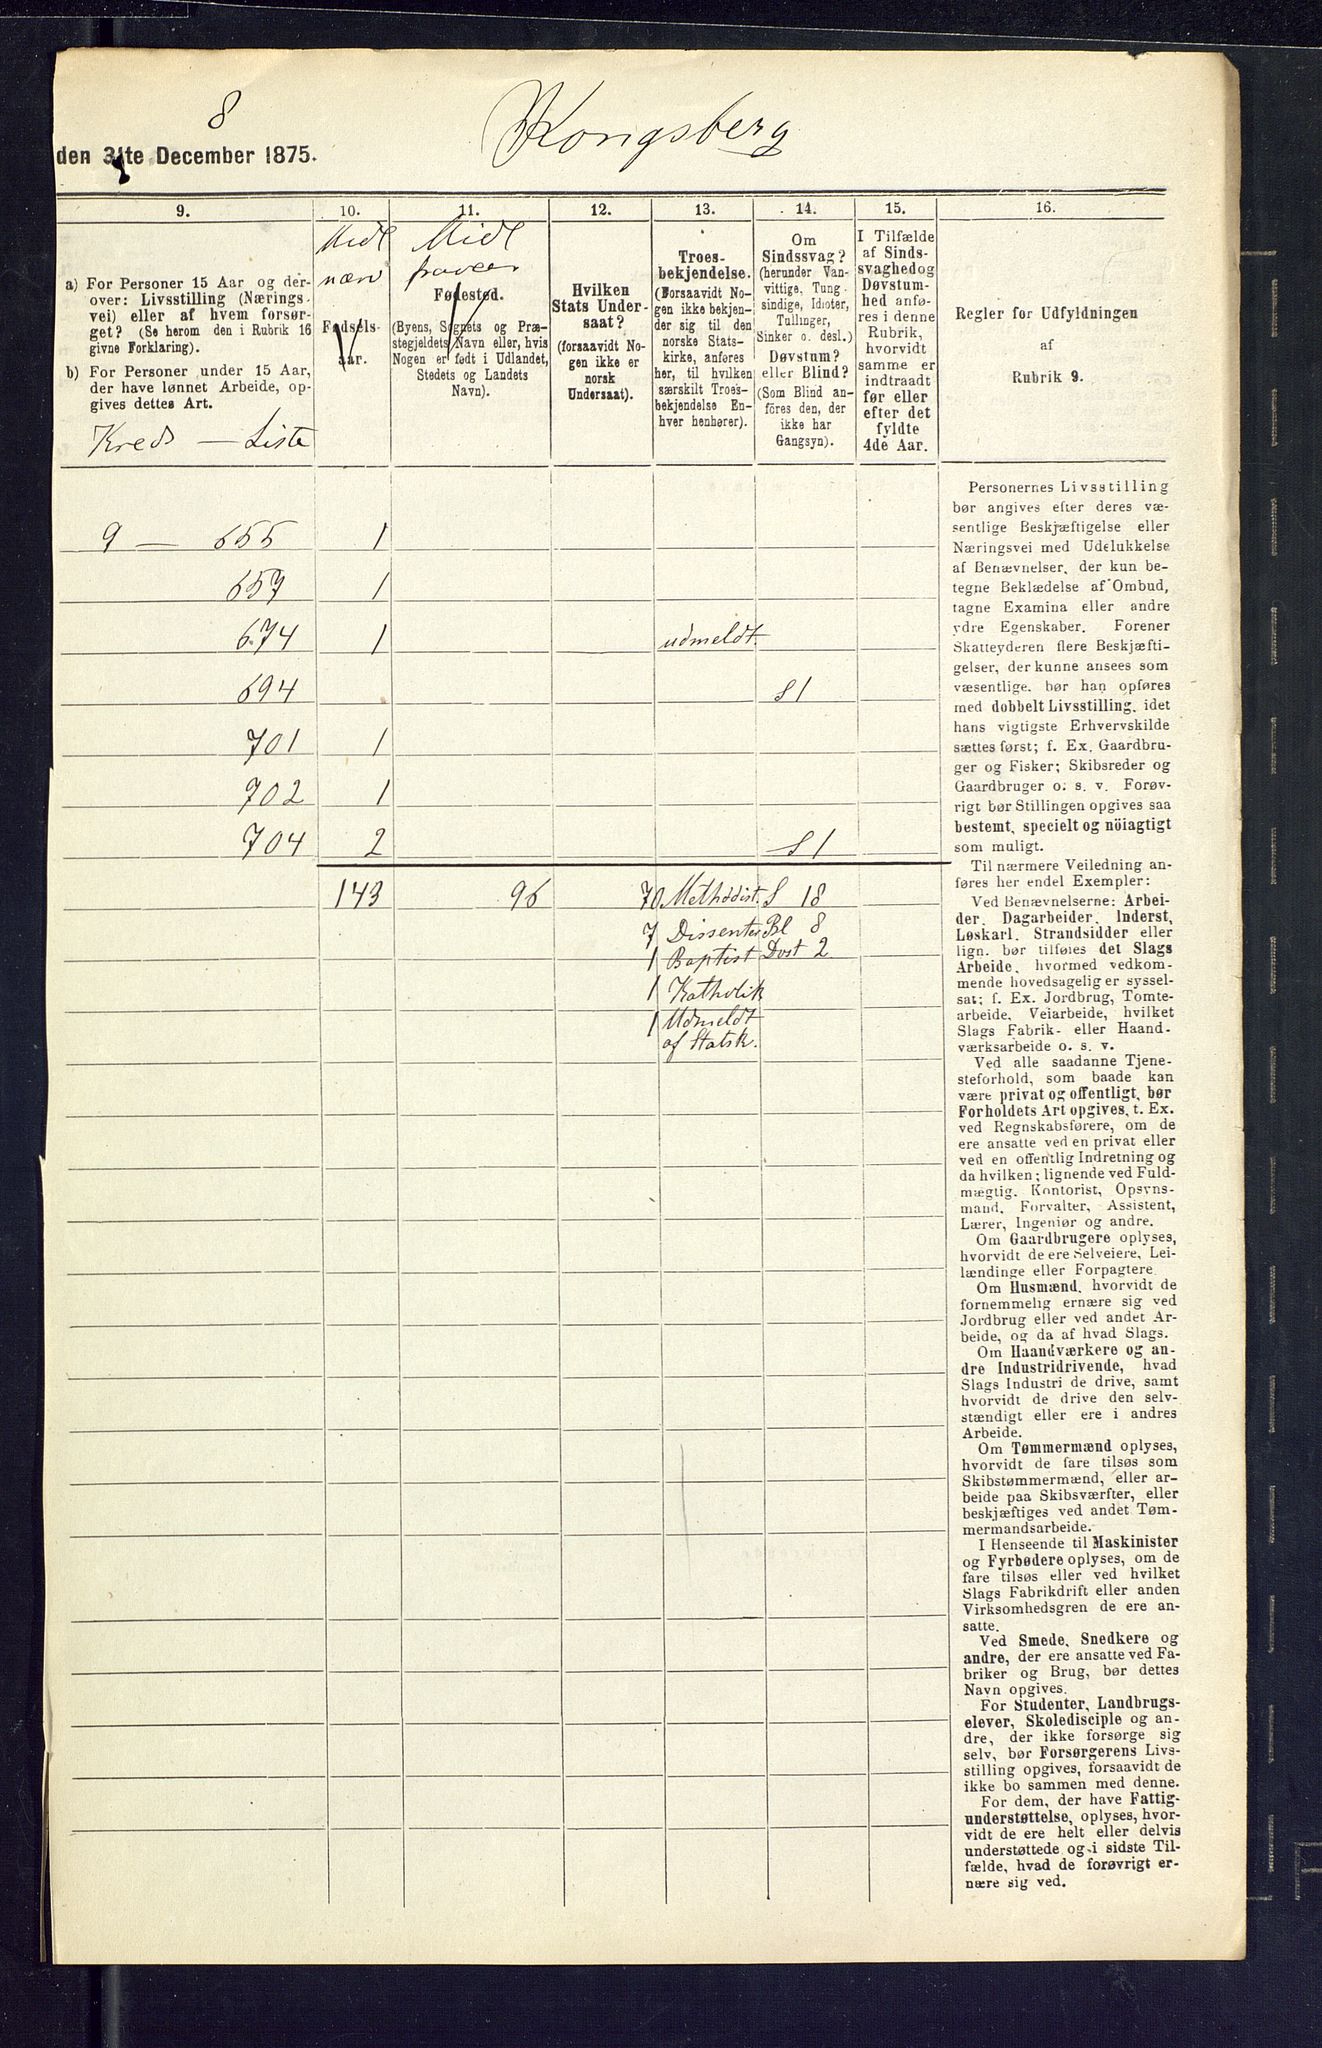 8
Kongsberg
den 31te December 1875.
9.
10.
11.
12.
13.
14.
15.
16.
a) For Personer 15 Aar og der-
over: Livsstilling (Nærings-
vei) eller af hvem forsør-
get? (Se herom den i Rubrik 16
givne Forklaring).
b) For Personer under 15 Aar,
der have lønnet Arbeide, op-
gives dettes Art.
Kreds — Liste
Midl
nærv
Fødsels-
aar.
Midl
fravær
Fødested.
(Byens, Sognets og Præ-
stegjeldets Navn eller, hvis
Nogen er født i Udlandet,
Stedets og Landets
Navn).
Hvilken
Stats Under-
saat?
(forsaavidt No-
gen ikke er
norsk
Undersaat).
Troes-
bekjendelse.
(Forsaavidt No-
gen ikke bekjen-
der sig til den
norske Stats-
kirke, anføres
her, til hvilken
særskilt Troes-
bekjendelse En-
hver henhører).
Om
Sindssvag?
(herunder Van-
vittige, Tung-
sindige, Idioter,
Tullinger,
Sinker o. desl.)
Døvstum?
eller Blind?
(Som Blind an-
föres den, der
ikke har
Gangsyn).
I Tilfælde
af Sinds-
svaghed og
Døvstum-
hed anfø-
res i denne
Rubrik,
hvorvidt
samme er
indtraadt
før eller
efter det
fyldte
4de Aar.
Regler for Udfyldningen
af
Rubrik 9.
9 — 655 1
657 1
674 1 udmeldt.
694 S 1
701 1
702 1
704 2 S 1
143 96 70 Methodist. S 18
7 Dissenter Bl 8
1 Baptist Døst 2
1 Katholik
1 Udmeldt
af Statsk.
Personernes Livsstilling
bør angives efter deres væ-
sentlige Beskjæftigelse eller
Næringsvei med Udelukkelse
af Benævnelser, der kun be-
tegne Beklædelse af Ombud,
tagne Examina eller andre
ydre Egenskaber. Forener
Skatteyderen flere Beskjæfti-
gelser, der kunne ansees som
væsentlige, bør han opføres
med dobbelt Livsstilling, idet
hans vigtigste Erhvervskilde
sættes først; f. Ex. Gaardbru-
ger og Fisker; Skibsreder og
Gaardbruger o. s. v. Forøv-
rigt bør Stillingen opgives saa
bestemt, specielt og nöiagtigt
som muligt.
Til nærmere Veiledning an-
føres her endel Exempler:
Ved Benævnelserne: Arbei-
der, Dagarbeider, Inderst,
Løskarl, Strandsidder eller
lign. bør tilføies det Slags
Arbeide, hvormed vedkom-
mende hovedsagelig er syssel-
sat; f. Ex. Jordbrug, Tomte-
arbeide, Veiarbeide, hvilket
Slags Fabrik- eller Haand-
værksarbeide o. s. v.
Ved alle saadanne Tjene-
steforhold, som baade kan
være privat og offentligt, bør
Forholdets Art opgives, t. Ex.
ved Regnskabsførere, om de
ere ansatte ved en privat eller
ved en offentlig Indretning og
da hvilken; lignende ved Fuld-
mægtig, Kontorist, Opsyns-
mand, Forvalter, Assistent,
Lærer, Ingeniør og andre.
Om Gaardbrugere oplyses,
hvorvidt de ere Selveiere, Lei-
lændinge eller Forpagtere.
Om Husmænd, hvorvidt de
fornemmelig ernære sig ved
Jordbrug eller ved andet Ar-
beide, og da af hvad Slags.
Om Haandværkere og an-
dre Industridrivende, hvad
Slags Industri de drive, samt
hvorvidt de drive den selv-
stændigt eller ere i andres
Arbeide.
Om Tømmermænd oplyses,
hvorvidt de fare tilsøs som
Skibstømmermænd, eller ar-
beide paa Skibsværfter, eller
beskjæftiges ved andet Tøm-
mermandsarbeide.
I Henseende til Maskinister
og Fyrbødere oplyses, om de
fare tilsøs eller ved hvilket
Slags Fabrikdrift eller anden
Virksomhedsgren de ere an-
satte.
Ved Smede, Snedkere og
andre, der ere ansatte ved Fa-
briker og Brug, bør dettes
Navn opgives.
For Studenter, Landbrugs-
elever, Skoledisciple og an-
dre, der ikke forsørge sig
selv, bør Forsørgerens Livs-
stilling opgives, forsaavidt de
ikke bo sammen med denne.
For dem, der have Fattig-
understøttelse, oplyses, hvor-
vidt de ere helt eller delvis
understøttede og i sidste Til-
fælde, hvad de forøvrigt er-
nære sig ved.